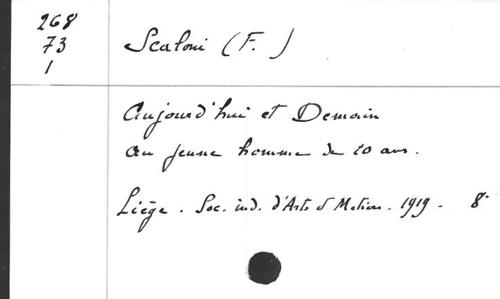 268
73
1
Scaloni (F.)
Aujourd'hui et Demain
au jeune homme de 20 ans.
Liège. Soc. ind. d'Arts & Metiers. 1919. 8°